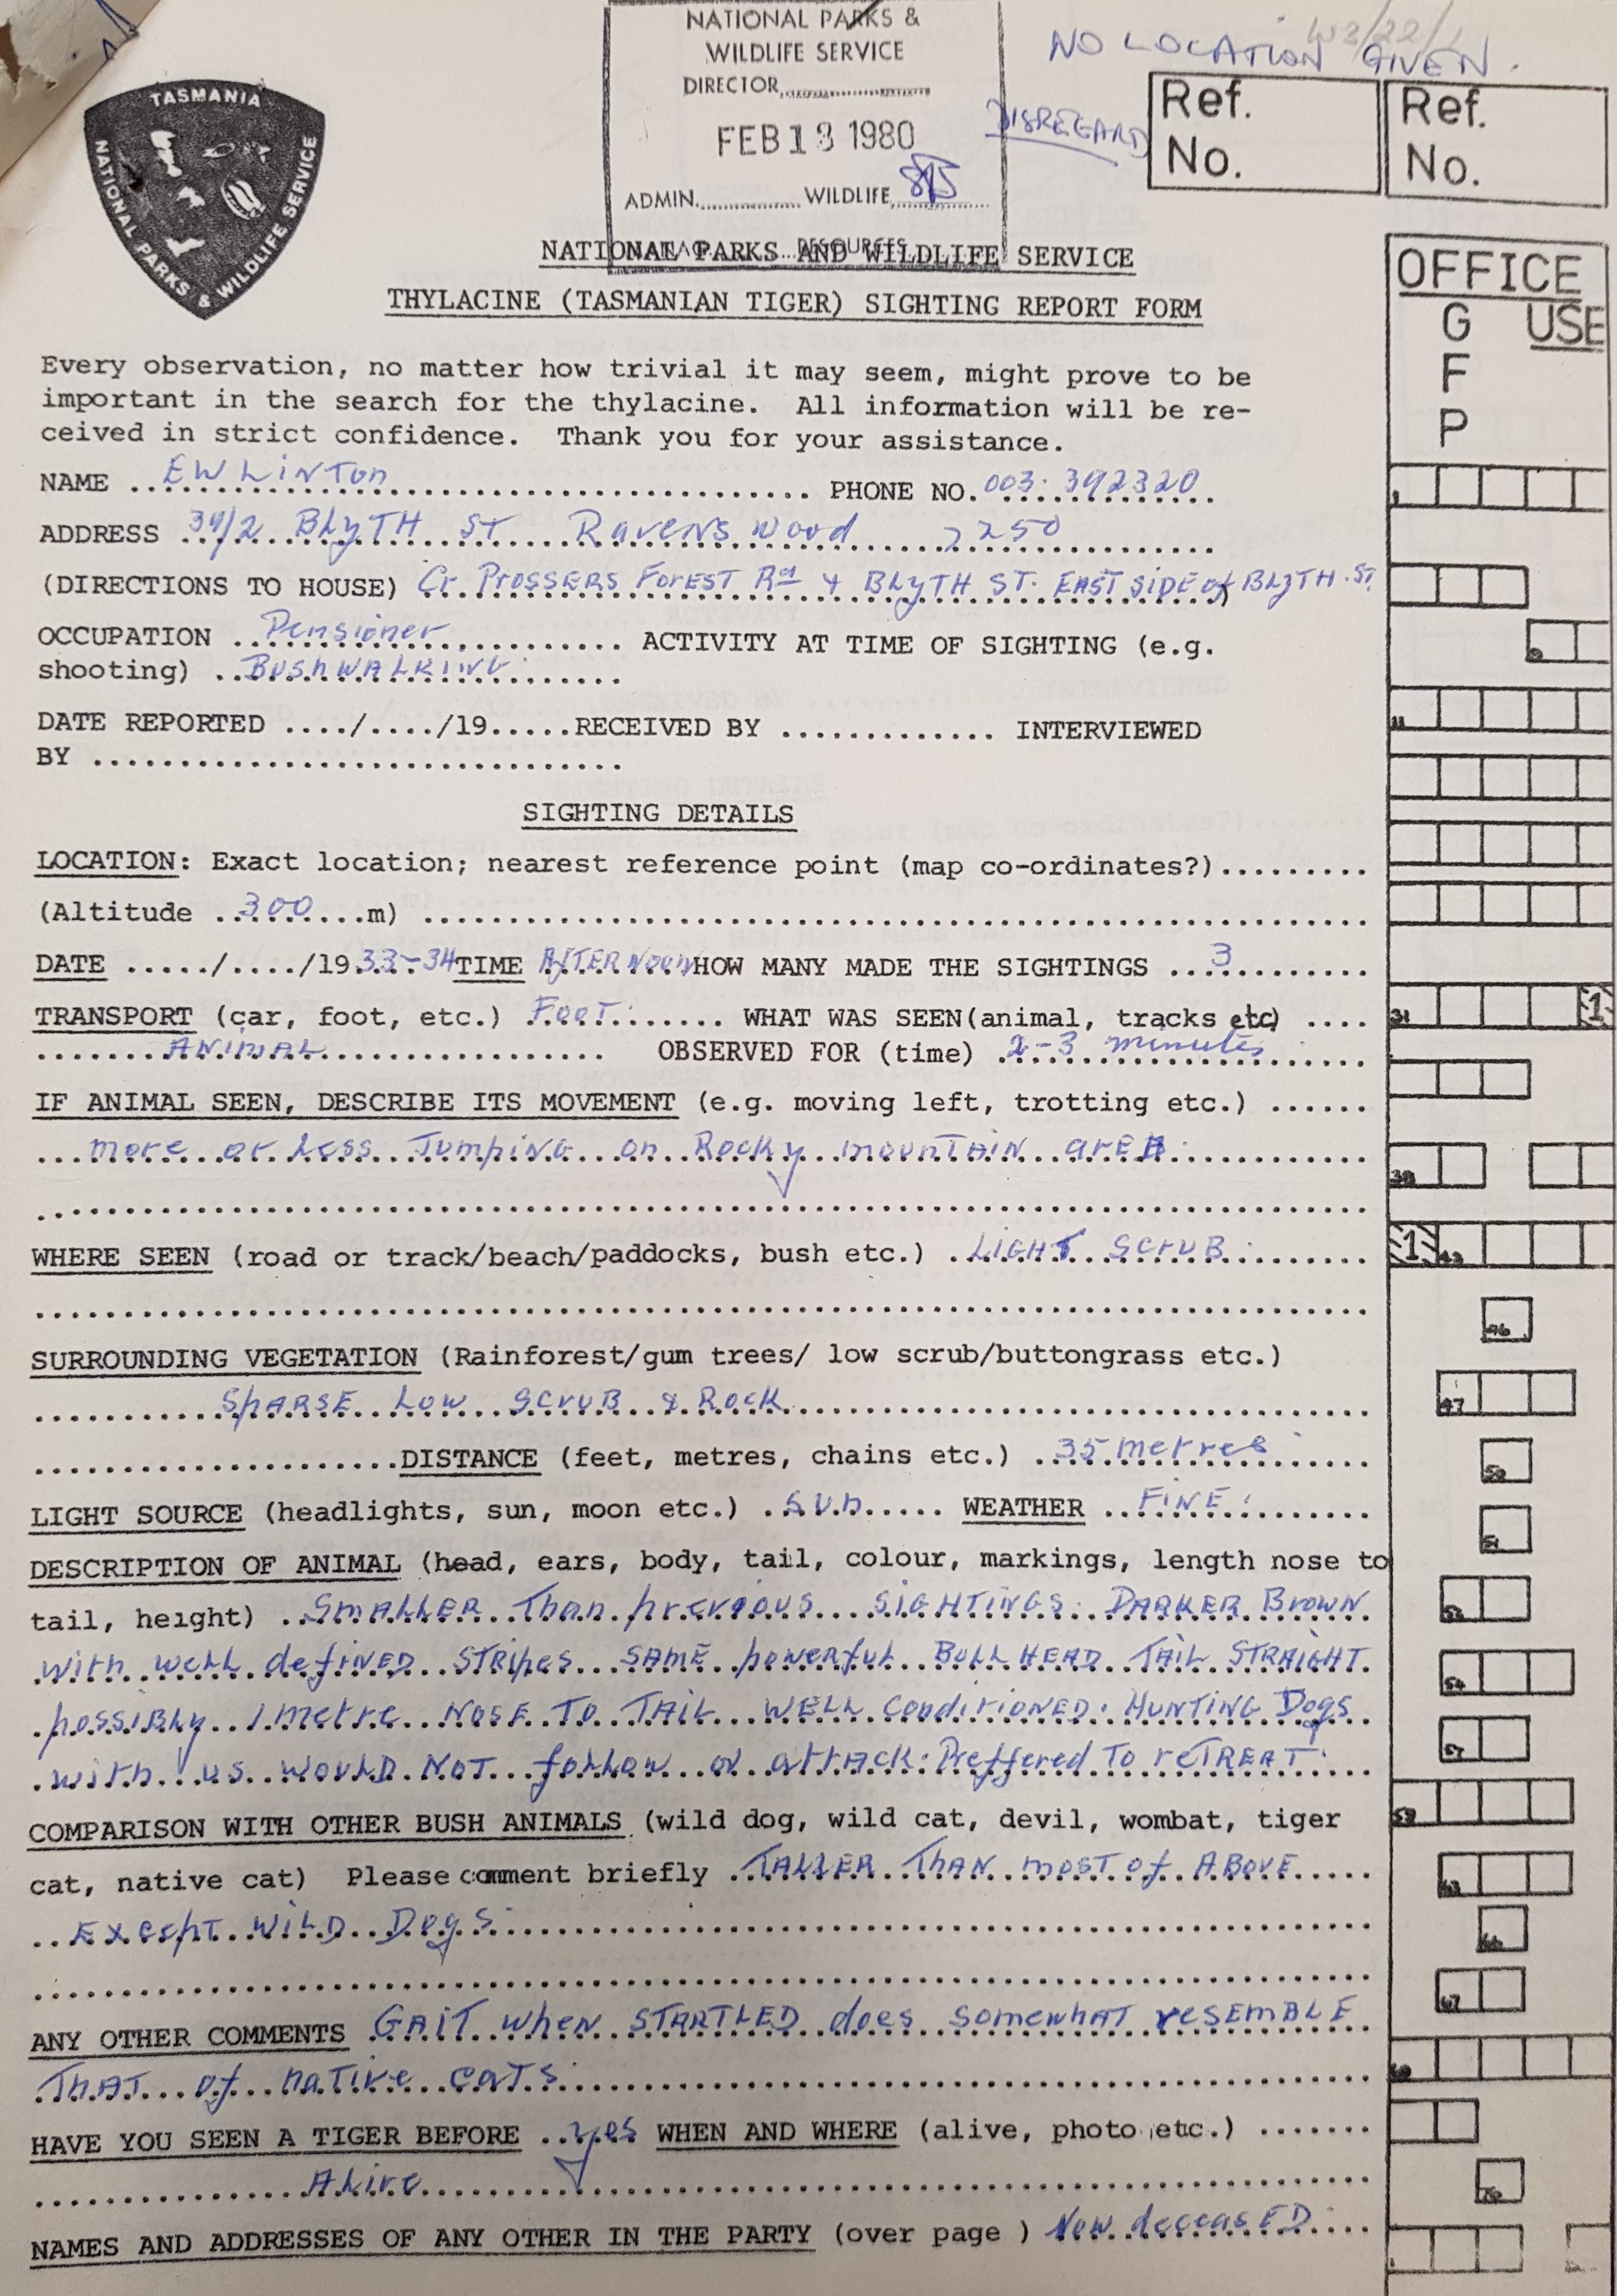 NATIONAL PARKS &
WILDLIFE SERVICE
DIRECTOR..............................
FEB 13 1980
ADMIN................ WILDLIFE................
RESOURCES
NO LOCATION GIVEN.
DISREGARD
Ref. No.
Ref. No.
TASMANIA
NATIONAL PARKS & WILDLIFE SERVICE
NATIONAL PARKS AND WILDLIFE SERVICE
THYLACINE (TASMANIAN TIGER) SIGHTING REPORT FORM
OFFICE USE
G
F
P
Every observation, no matter how trivial it may seem, might prove to be
important in the search for the thylacine. All information will be re-
ceived in strict confidence. Thank you for your assistance.
NAME EW LiNTon PHONE NO. 003. 392320
ADDRESS 39/2 BLyTH ST Ravens wood 7250
(DIRECTIONS TO HOUSE) Cr PROSSERS FOREST Rd & BLyTH ST. EAST SIDE of BLyTH. ST.
OCCUPATION Pensioner ACTIVITY AT TIME OF SIGHTING (e.g.
shooting) BUShWALKING.
DATE REPORTED ..../..../19.....RECEIVED BY ............. INTERVIEWED
BY ................................
SIGHTING DETAILS
LOCATION: Exact location; nearest reference point (map co-ordinates?).........
(Altitude 300 m)
DATE ...../..../19 33-34 TIME AfTERNoon HOW MANY MADE THE SIGHTINGS 3
TRANSPORT (car, foot, etc.) FooT. WHAT WAS SEEN(animal, tracks etc) ....
ANiMAL OBSERVED FOR (time) 2-3 minutes
IF ANIMAL SEEN, DESCRIBE ITS MOVEMENT (e.g. moving left, trotting etc.) ......
more or Less JumpiNG on Rocky mounTAIN areA.
WHERE SEEN (road or track/beach/paddocks, bush etc.) LiGHT SCruB.
SURROUNDING VEGETATION (Rainforest/gum trees/ low scrub/buttongrass etc.)
SpARSE Low SCruB & Rock
DISTANCE (feet, metres, chains etc.) 35 metres
LIGHT SOURCE (headlights, sun, moon etc.) Sun WEATHER FiNE.
DESCRIPTION OF ANIMAL (head, ears, body, tail, colour, markings, length nose to
tail, height) SmALLER Than previous SiGHTINGS. DARKER Brown
with well defiNED STRipes SAME powerful BULL HEAD TAIL STRAIGHT
possiBLy 1 metre NOSE TO TAIL WELL CondiTiONED. HUNTING Dogs
with us would NOT follow or atTACK. Preffered To reTREAT.
COMPARISON WITH OTHER BUSH ANIMALS (wild dog, wild cat, devil, wombat, tiger
cat, native cat) Please comment briefly TALLER ThAN most of ABOVE
ExcepT WiLD Dogs.
ANY OTHER COMMENTS GAiT when STARTLED does somewhAT reSEMBLE
ThAT of naTive caTs.
HAVE YOU SEEN A TIGER BEFORE yes WHEN AND WHERE (alive, photo etc.) .......
ALive
NAMES AND ADDRESSES OF ANY OTHER IN THE PARTY (over page ) Now deceasED.